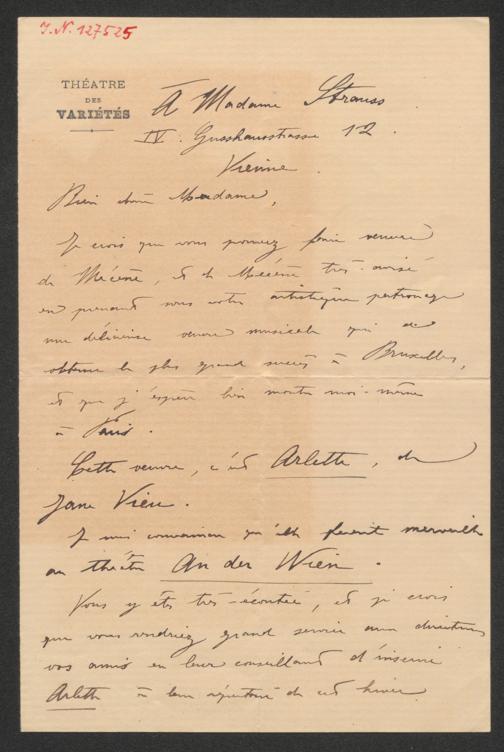 I.N. 127525
THÉATRE
DES
VARIÉTÉS
À Madame Strauss
IV. Gusshausstrasse 12.
Vienne.
Bien chère Madame,
Je crois que vous pourriez faire oeuvre
de Mécène, et de Mécène très-avisé
en prenant sous votre artistique patronage
une délicieuse oeuvre musicale qui a
obtenu le plus grand succès à Bruxelles,
et que j'espère bien monter moi-même
à Paris.
Cette oeuvre, c'est Arlette, de
Jane Vieu.
Je suis convaincu qu'elle ferait merveille
au théâtre An der Wien.
Vous y êtes très-écoutée, et je crois
que vous rendriez grand service aux directeurs
vos amis en leur conseillant d'inscrire
Arlette à leur répertoire de cet hiver.